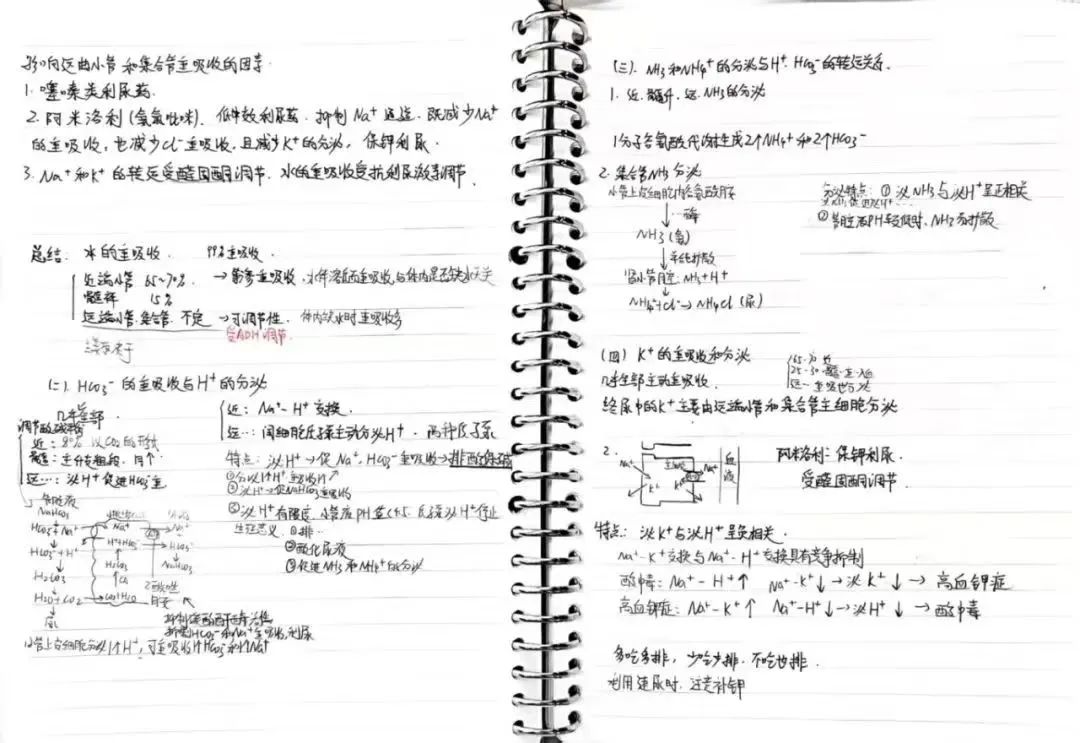 影响远曲小管和集合管重吸收的因素
1. 噻嗪类利尿药.
2. 阿米洛利(氨氯吡咪). 低效利尿药. 抑制Na⁺通道. 既减少Na⁺
的重吸收, 也减少Cl⁻重吸收, 且减少K⁺的分泌, 保钾利尿.
3. Na⁺和K⁺的转运受醛固酮调节. 水的重吸收受抗利尿激素调节.
总结: 水的重吸收. 99%重吸收.
近端小管 65~70% → 等渗重吸收, 水伴溶质而重吸收, 与体内是否缺水无关
髓袢 15%
远端小管.集合管 不定 → 可调节性. 体内缺水时重吸收多
受ADH调节.
(二). HCO₃⁻的重吸收与H⁺的分泌
几乎全部.
近: 80% 以CO₂的形式
髓: 主升支粗段. 同个
远…: 泌H⁺促进HCO₃⁻重
近: Na⁺-H⁺交换.
远…: 闰细胞质子泵主动分泌H⁺. 两种质子泵
特点: 泌H⁺→促Na⁺, HCO₃⁻重吸收→排酸保碱
②泌H⁺→促NaHCO₃重吸收
③泌H⁺有限度. 小管液pH值<4.5. 质子泵泌H⁺停止
生理意义. ①排…
②酸化尿液
③促进NH₃和NH₄⁺的分泌
NaHCO₃
HCO₃⁻+Na⁺
HCO₃⁻+H⁺
H₂CO₃
H₂O+CO₂
Na⁺
H⁺+HCO₃⁻
H₂CO₃
CO₂+H₂O
Na⁺
HCO₃⁻
NaHCO₃
抑制HCO₃⁻和Na⁺重吸收, 利尿
小管上皮细胞分泌1个H⁺, 可重吸收1个HCO₃⁻和1个Na⁺
(三). NH₃和NH₄⁺的分泌与H⁺. HCO₃⁻的转运关系.
1. 近. 髓升. 远. NH₃的分泌
1分子谷氨酰代谢生成2个NH₄⁺和2个HCO₃⁻
2. 集合管NH₃分泌
小管上皮细胞内谷氨酰胺
↓…酶
NH₃(氨)
↓ 单纯扩散
肾小管管腔: NH₃+H⁺
↓
NH₄⁺+Cl⁻→NH₄Cl (尿)
分泌特点: ① 泌NH₃与泌H⁺呈正相关
② 管腔液PH较低时, NH₃易扩散
(四) K⁺的重吸收和分泌
几乎全部主动重吸收.
65-70 近
25-30 髓
远… 重吸也分泌
终尿中的K⁺主要由远端小管和集合管主细胞分泌
2.
Na⁺
K⁺
主细胞
Na⁺
K⁺
血液
阿米洛利: 保钾利尿.
受醛固酮调节.
特点: 泌K⁺与泌H⁺呈负相关.
Na⁺-K⁺交换与Na⁺-H⁺交换具有竞争抑制
酸中毒: Na⁺-H⁺↑ Na⁺-K⁺↓→泌K⁺↓ → 高血钾症
高血钾症: Na⁺-K⁺↑ Na⁺-H⁺↓→泌H⁺↓ → 酸中毒
多吃多排, 少吃少排. 不吃也排.
利用速尿时. 注意补钾